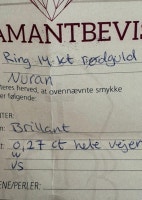 AMANTBEVIS
Ring 14 kt rødguld
Nuran
teres herved, at ovennævnte smykke
er følgende:
NTER:
Brillant
0,27 ct hele vejen
W
VS
ENE/PERLER: